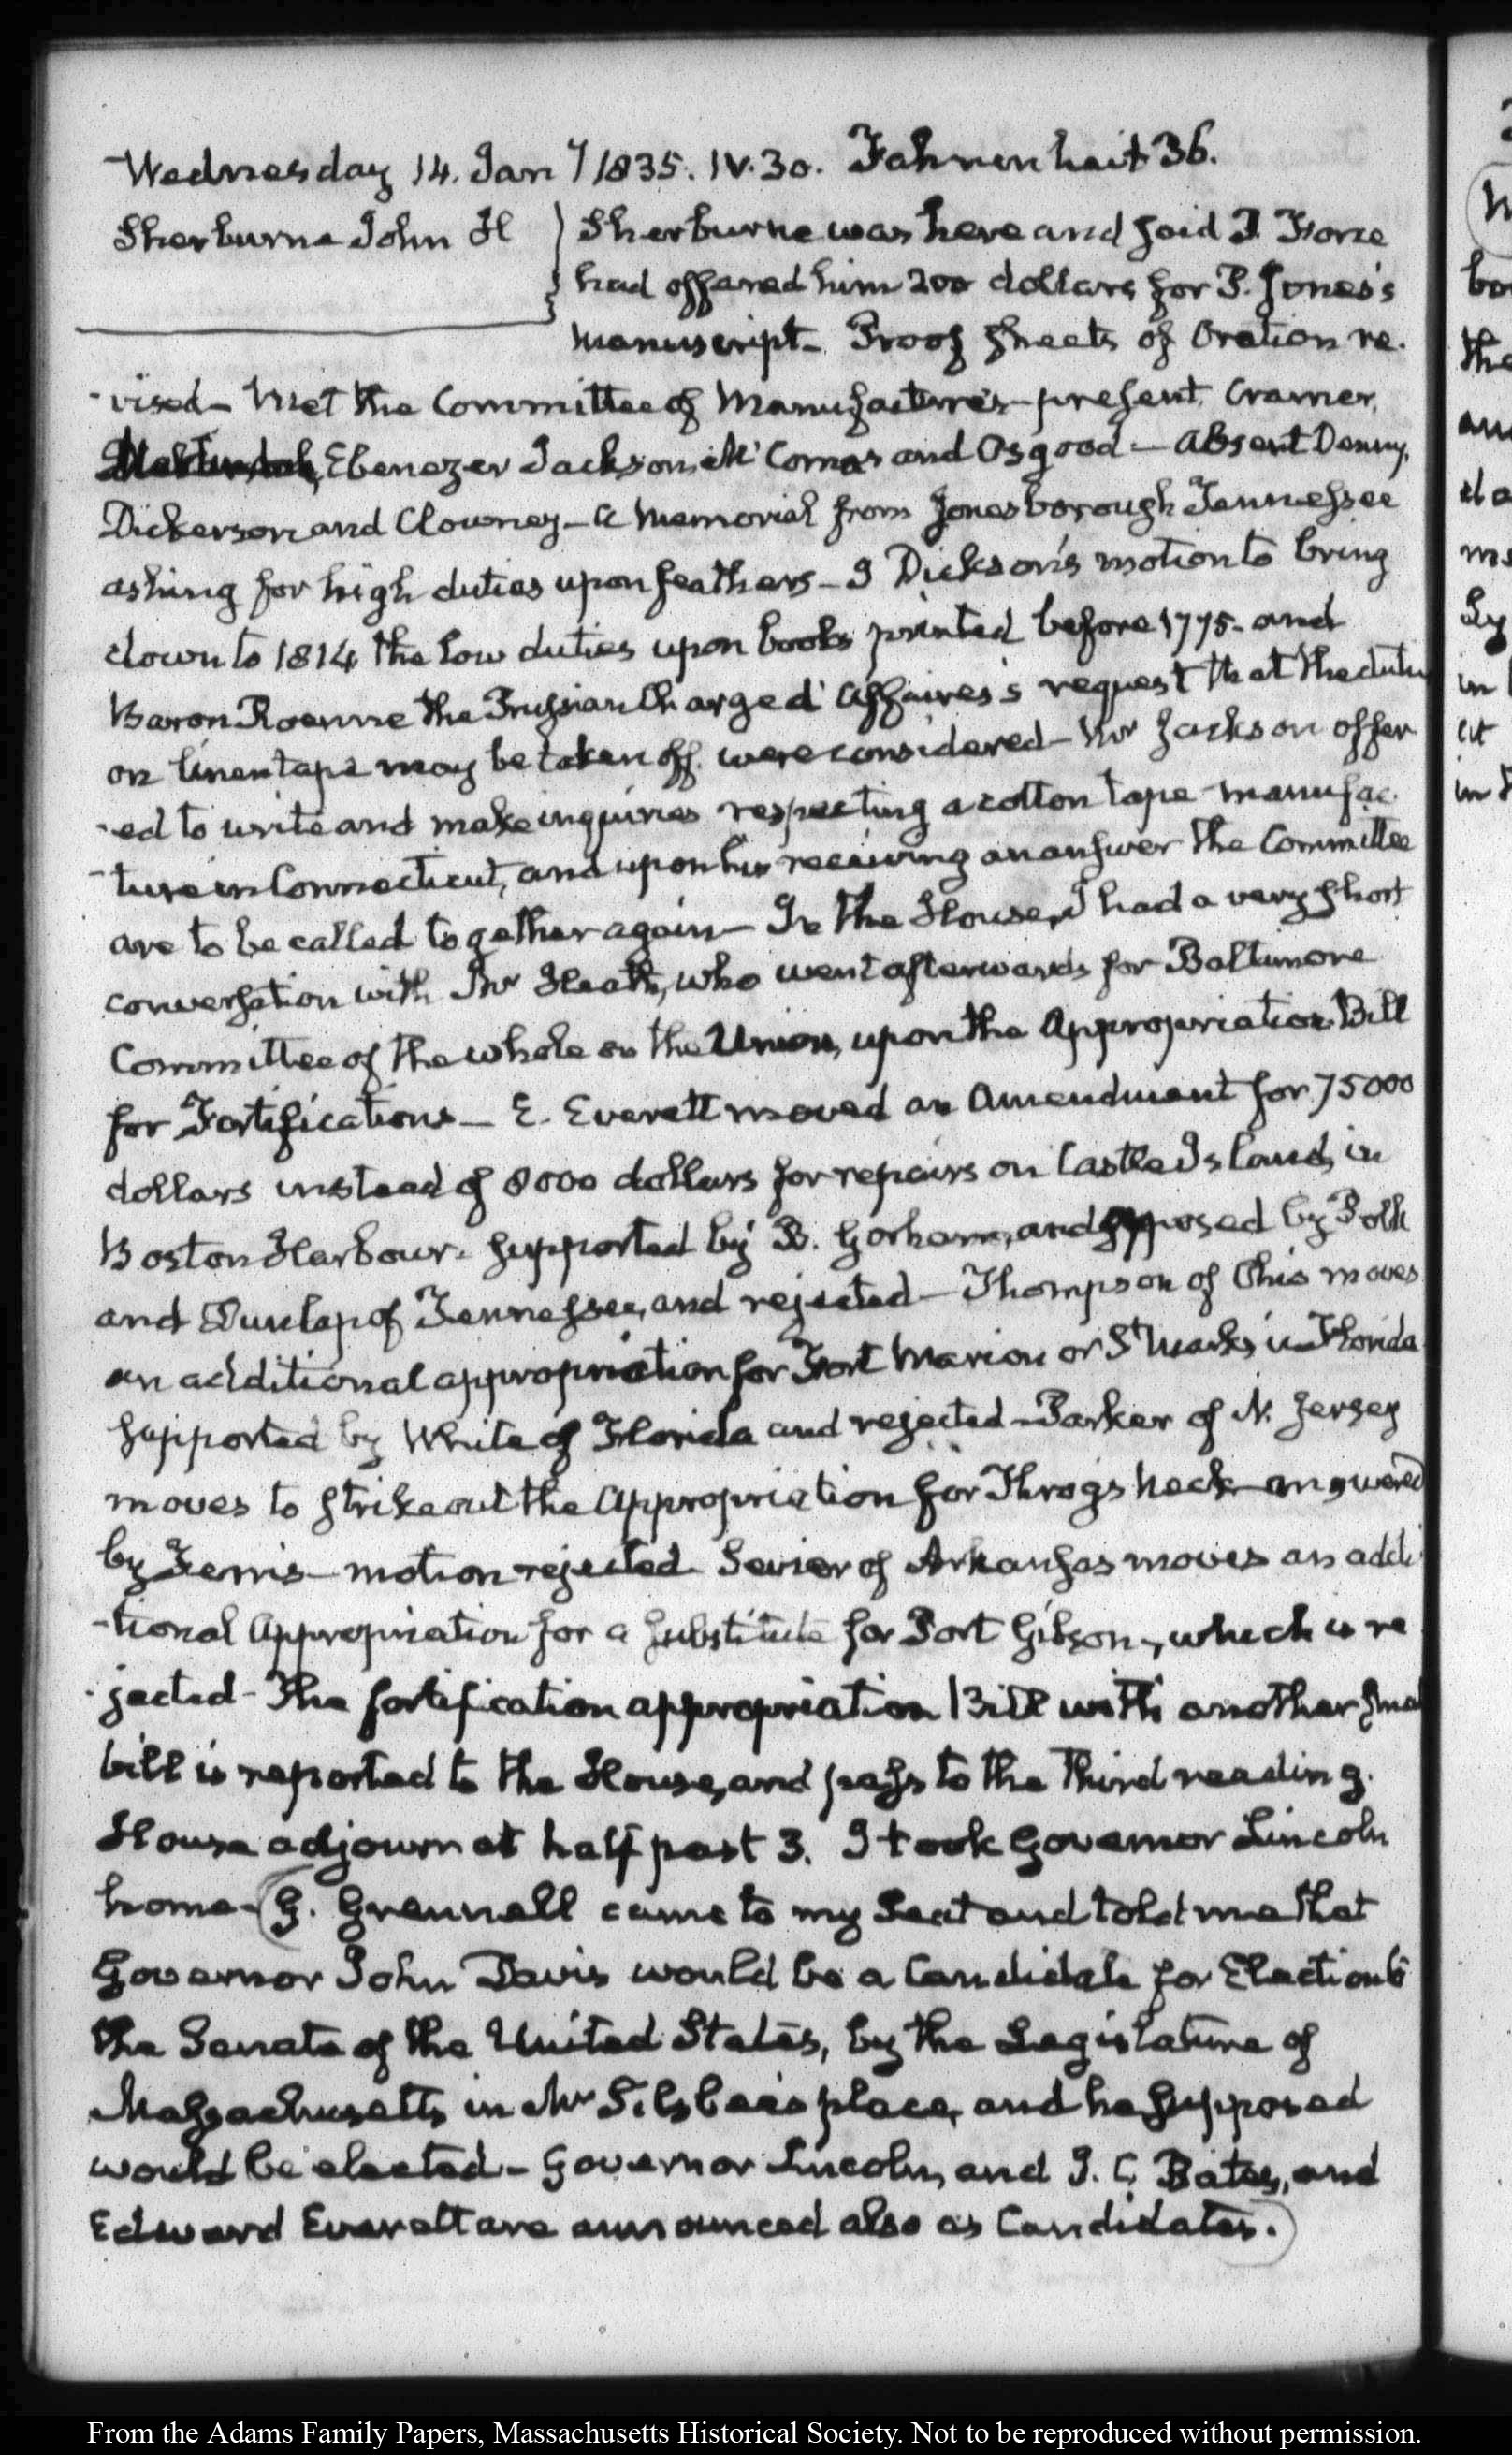 Wednesday 14. Jany 1835. IV.30. Fahrenheit 36.
Sherburne John H } Sherburne was here and said P. Force
had offered him 200 dollars for P. Jones's
Manuscript— Proof sheets of Oration re-
-vised— Met the Committee of Manufactures— present. Cramer,
Ebenezer Jackson, McComas and Osgood— Absent Denny,
Dickerson and Clowney— A Memorial from Jonesborough Tennessee
asking for high duties upon feathers— Dickson's motion to bring
down to 1814 the low duties upon books printed before 1775— and
Baron Roenne the Prussian Chargé d'Affaires's request that the duties
on linen tape may be taken off were considered— Mr Jackson offer
-ed to write and make inquiries respecting a cotton tape manufac-
-ture in Connecticut, and upon his receiving an answer the Committee
are to be called together again— In the House, I had a very short
conversation with Mr Heath, who went afterwards for Baltimore
Committee of the whole on the Union, upon the Appropriation Bill
for Fortifications— E. Everett moved an Amendment for 75000
dollars instead of 8000 dollars for repairs on Castle Island, in
Boston Harbour. supported by B. Gorham, and opposed by Polk
and Dunlap of Tennessee, and rejected— Thompson of Ohio moves
an additional appropriation for Fort Marion or St Marks in Florida
supported by White of Florida and rejected— Parker of N. Jersey
moves to strike out the Appropriation for Throgs Neck— answered
by Ferris— motion rejected— Sevier of Arkansas moves an addi
-tional Appropriation for a substitute for Fort Gibson, which is re
-jected— The fortification appropriation Bill with another small
bill is reported to the House, and pass to the third reading.
House adjourn at half past 3. I took Governor Lincoln
home— (G. Grennell came to my Seat and told me that
Governor John Davis would be a Candidate for Election to
the Senate of the United States, by the Legislature of
Massachusetts in Mr Silsbee's place, and he supposed
would be elected— Governor Lincoln, and I. C. Bates, and
Edward Everett are announced also as Candidates.)
From the Adams Family Papers, Massachusetts Historical Society. Not to be reproduced without permission.